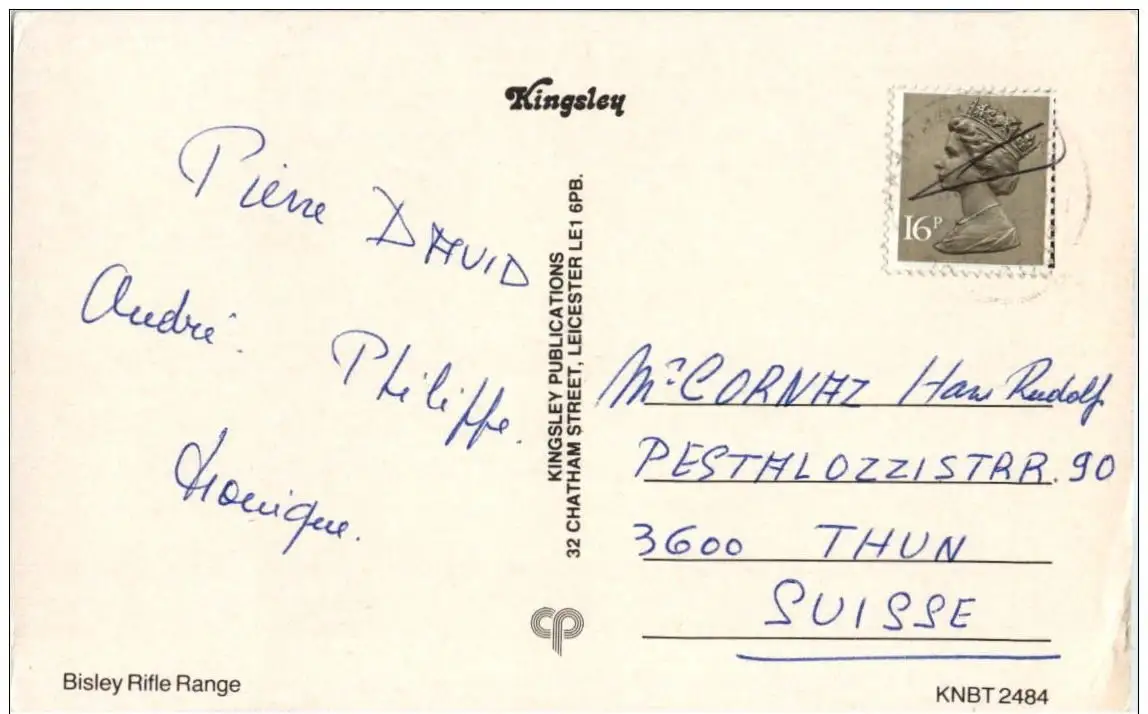 Kingsley
Pierre DAVID
André.
Philippe.
Monique.
KINGSLEY PUBLICATIONS
32 CHATHAM STREET, LEICESTER LE1 6PB.
16P
Mr CORNAZ Hans Rudolf
PESTALOZZISTRR. 90
3600 THUN
SUISSE
cp
Bisley Rifle Range
KNBT 2484